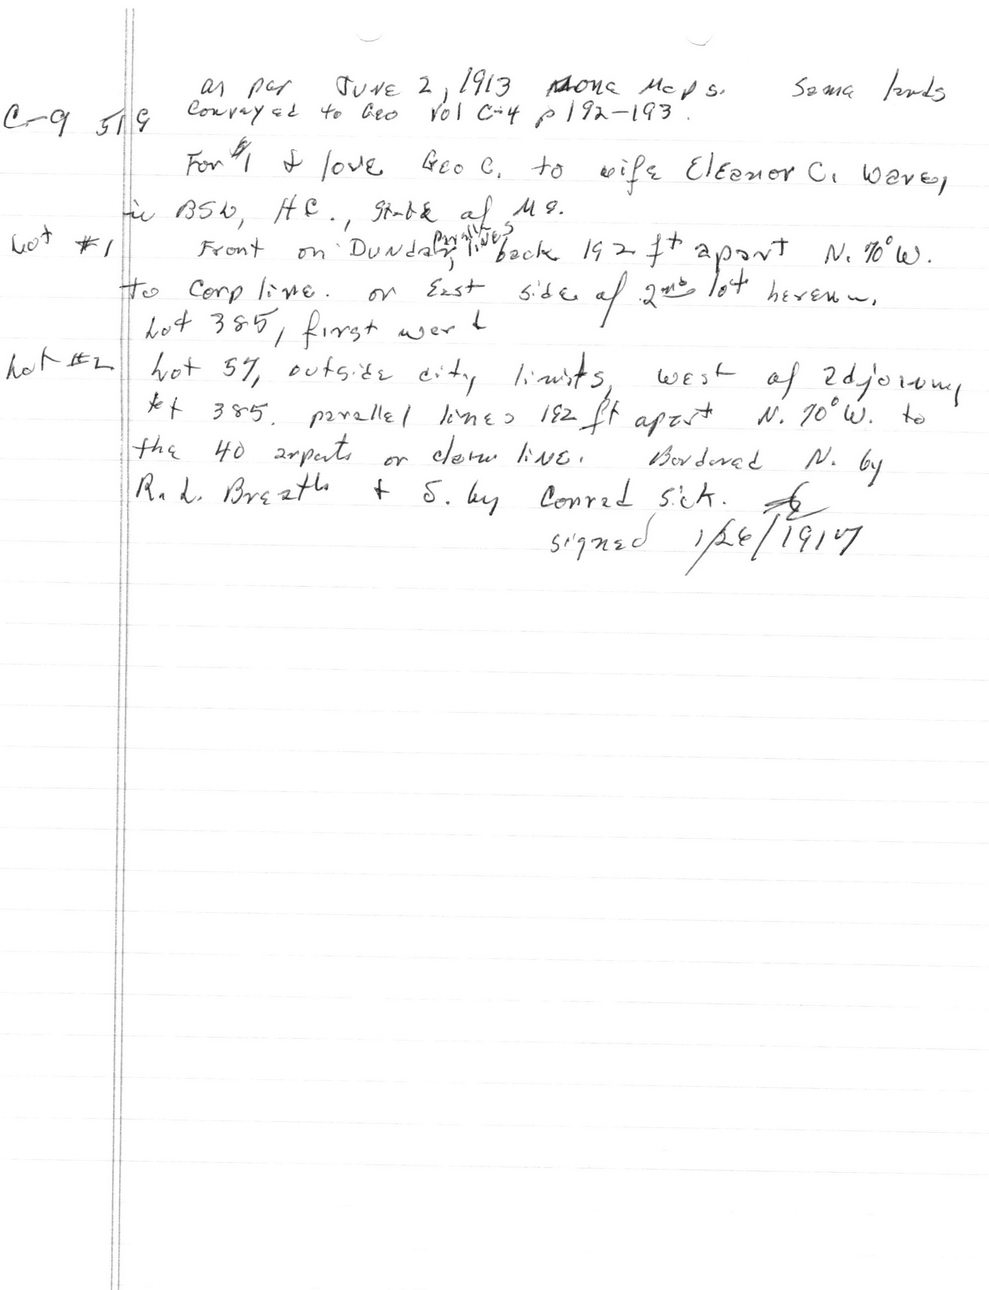 as per June 2, 1913 Mone Maps. Same lands
C-9 519 conveyed to Geo Vol C-4 p 192-193.
For $1 & love Geo C. to wife Eleanor C. Waves,
in BSL, HC., State of MS.
Lot #1 Front on Dundar, parallel lines back 192 ft apart N. 70° W.
to Corp line. or East side of 2nd lot herein.
Lot 385, first ward
Lot #2 Lot 57, outside city limits, west of adjoining
lot 385. parallel lines 192 ft apart N. 70° W. to
the 40 arpents or claim line. Bordered N. by
R. L. Breath & S. by Conrad Sick.
signed 1/26/1917